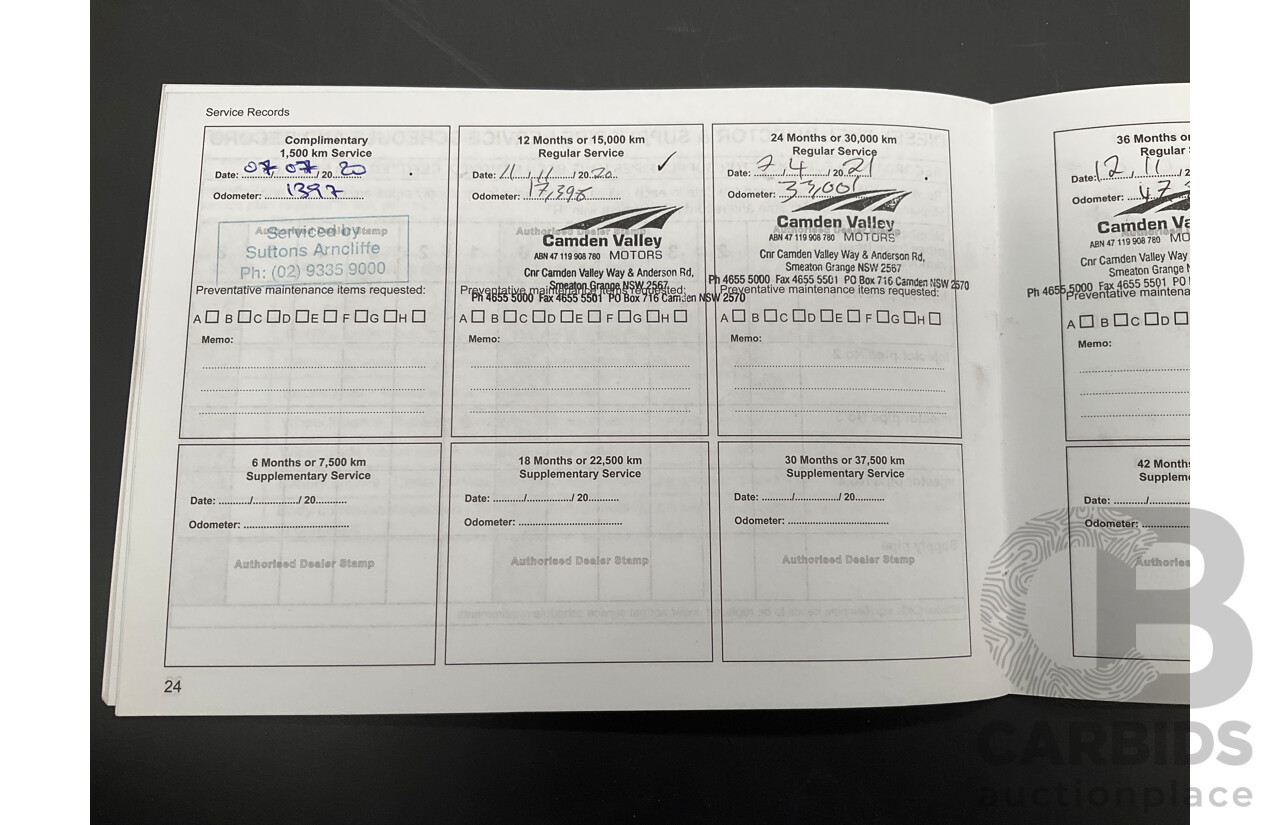 Service Records
Complimentary
1,500 km Service
Date: 07/07/2020
Odometer: 1397
Authorised Dealer Stamp
Serviced by
Suttons Arncliffe
Ph: (02) 9335 9000
Preventative maintenance items requested:
A B C D E F G H
Memo:
12 Months or 15,000 km
Regular Service
Date: 11/11/2020
Odometer: 17,398
Authorised Dealer Stamp
Camden Valley
ABN 47 119 908 780 MOTORS
Cnr Camden Valley Way & Anderson Rd,
Smeaton Grange NSW 2567
Preventative maintenance items requested:
Ph 4655 5000 Fax 4655 5501 PO Box 716 Camden NSW 2570
A B C D E F G H
Memo:
24 Months or 30,000 km
Regular Service
Date: 7/4/2021
Odometer: 33,001
Camden Valley
ABN 47 119 908 780 MOTORS
Cnr Camden Valley Way & Anderson Rd,
Smeaton Grange NSW 2567
Ph 4655 5000 Fax 4655 5501 PO Box 716 Camden NSW 2570
Preventative maintenance items requested:
A B C D E F G H
Memo:
36 Months or
Regular
Date: 12/11/2
Odometer: 47
Camden Va
ABN 47 119 908 780 MO
Cnr Camden Valley Way
Smeaton Grange N
Ph 4655 5000 Fax 4655 5501 PO
Preventative maintena
A B C D
Memo:
6 Months or 7,500 km
Supplementary Service
Date: / / 20
Odometer:
Authorised Dealer Stamp
18 Months or 22,500 km
Supplementary Service
Date: / / 20
Odometer:
Authorised Dealer Stamp
30 Months or 37,500 km
Supplementary Service
Date: / / 20
Odometer:
Authorised Dealer Stamp
42 Month
Supplem
Date: /
Odometer:
Authorise
24
CB
CARBIDS
auctionplace